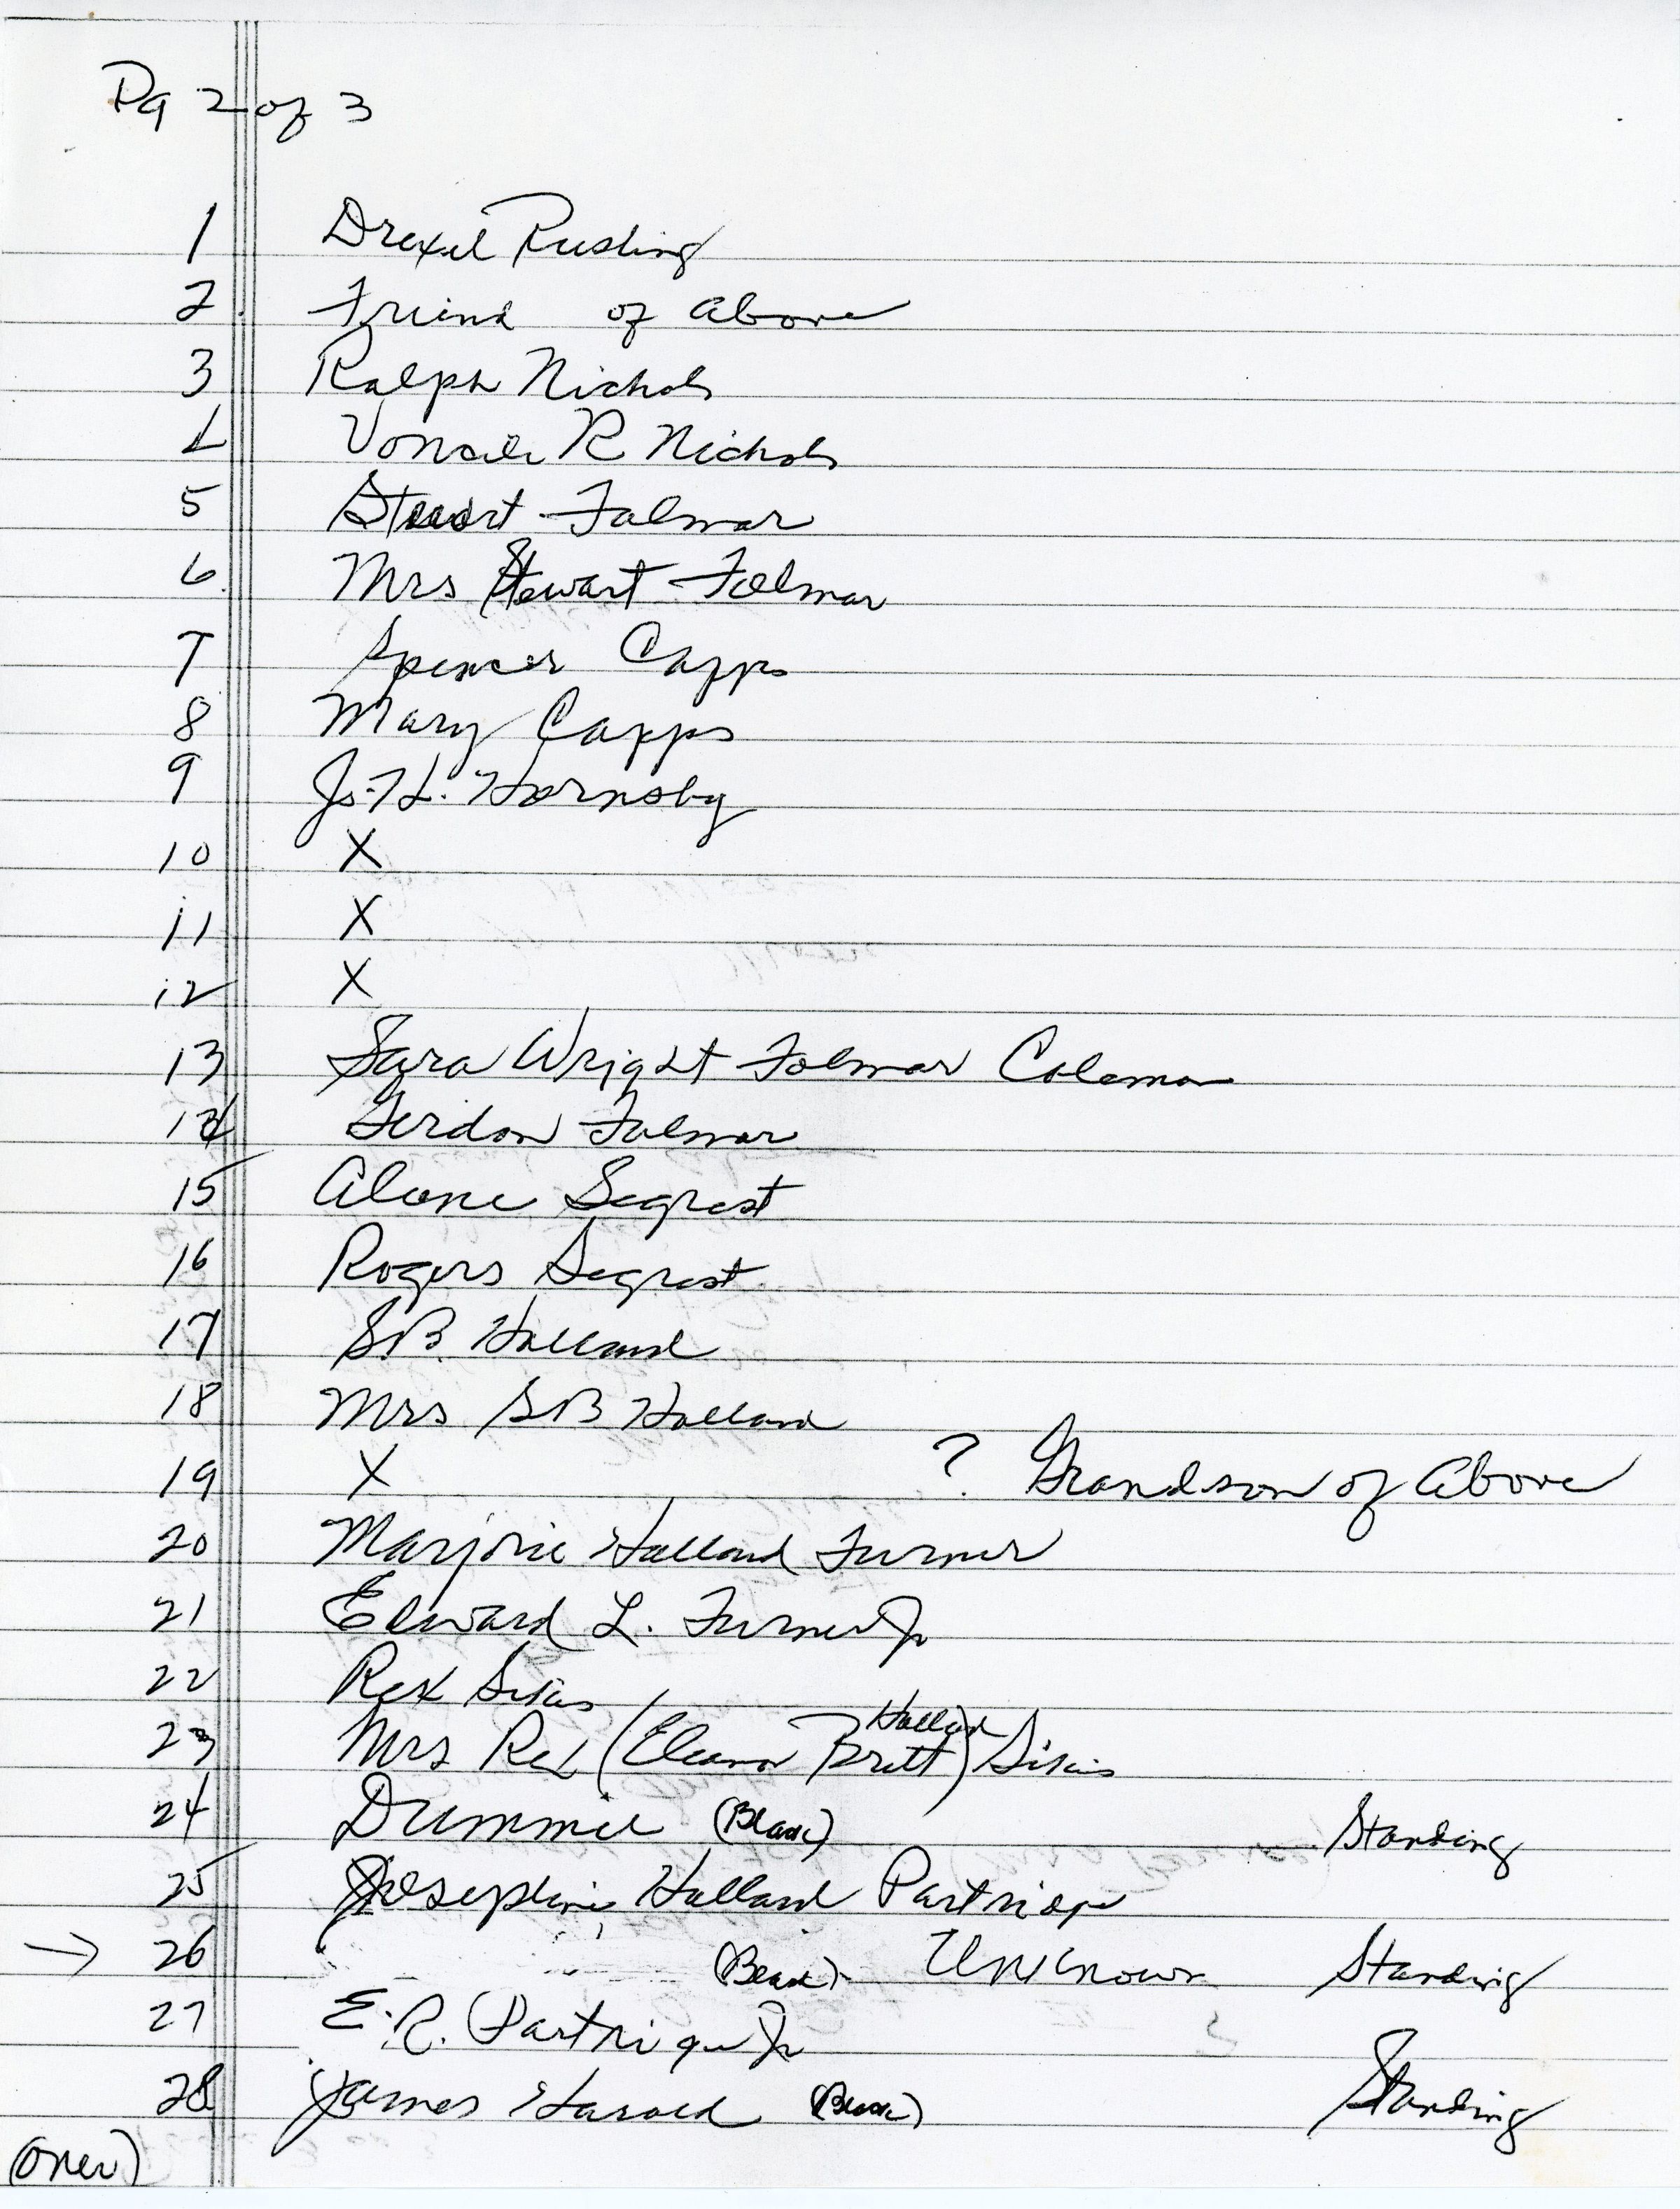 Pg 2 of 3
1 Drexel Rusling
2 Friend of above
3 Ralph Nichols
4 R Nichols
5 Stewart Folmar
6 Mrs Stewart Folmar
7 Spencer Capps
8 Mary Capps
9 Hornsby
10 X
11 X
12 X
13 Sara Wright Folmar Coleman
14 Folmar
15 Segrest
16 Rogers Segrest
17 S.B. Holland
18 Mrs SB Holland
19 X ? Grandson of Above
20 Marjorie Holland Turner
21 Edward L. Turner Jr
22 Rex Sikes
Holland
23 Mrs Rex (Eleanor Britt) Sikes
24 Dummie (Black) Standing
25 Josephine Holland Partridge
→ 26 (Black) Unknown Standing
27 E.R. Partridge Jr
28 James Harold (Black) Standing
(over)